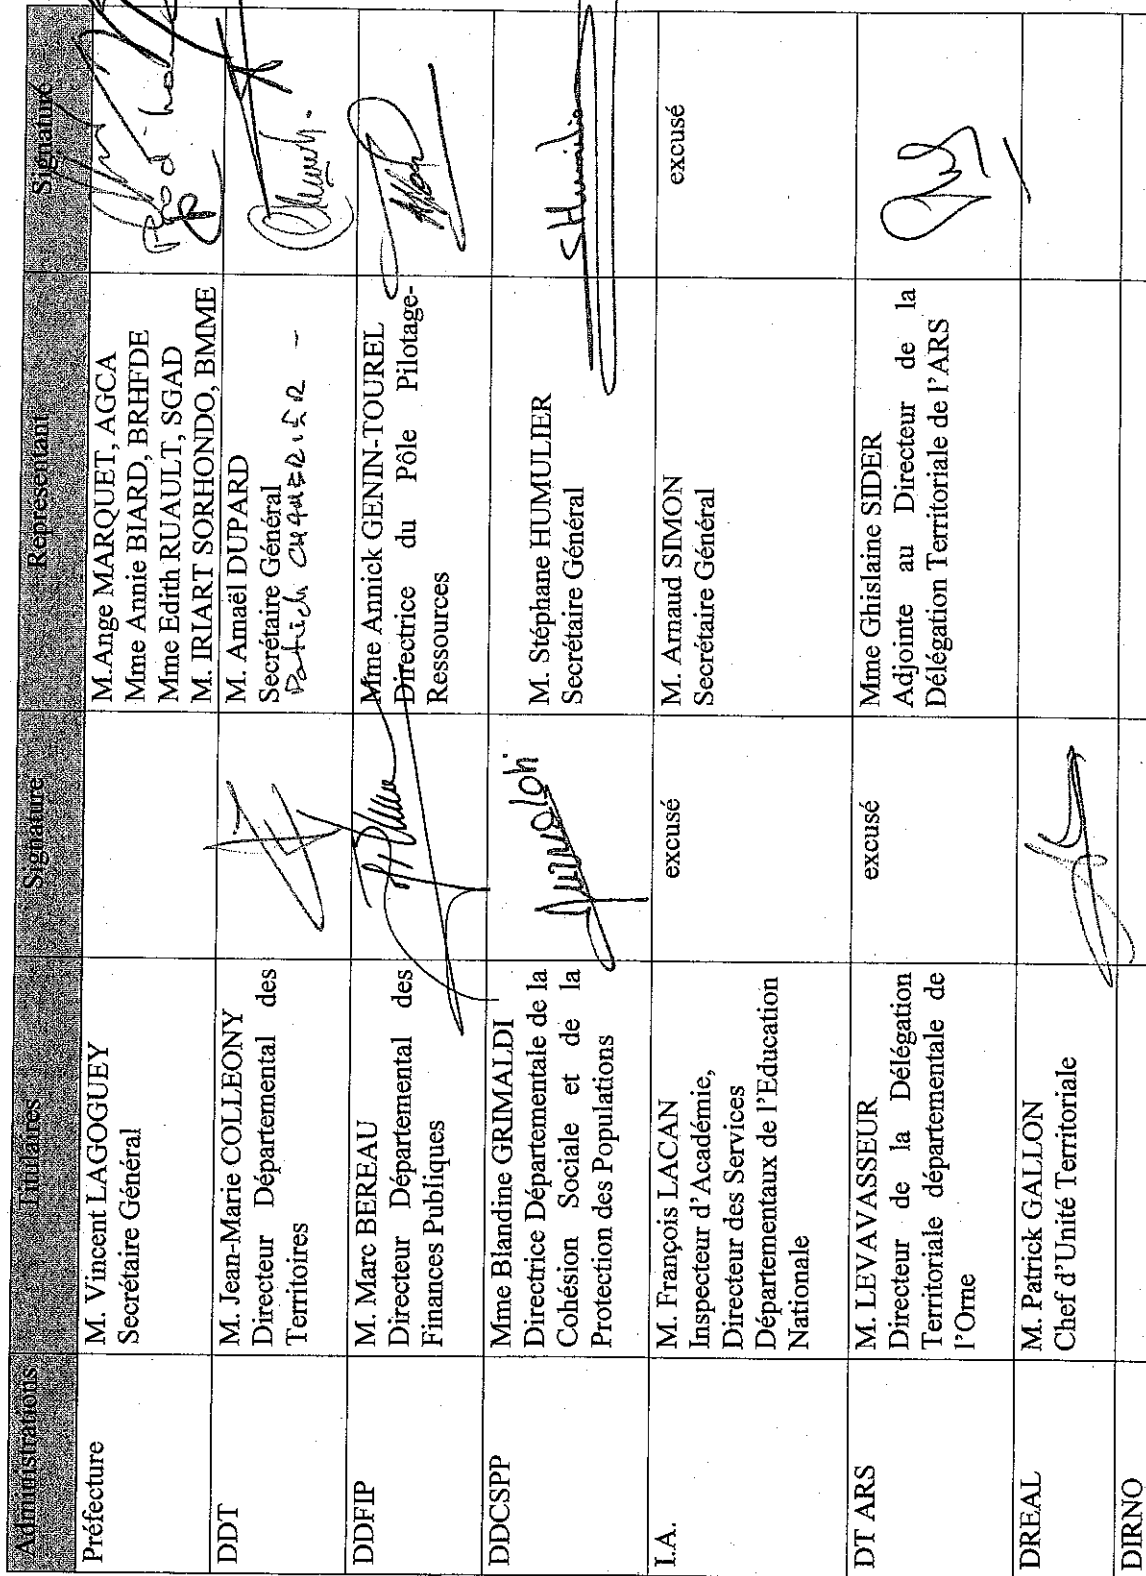 Administrations Titulaires Signature Représentant Signature
Préfecture
M. Vincent LAGOGUEY
Secrétaire Général
M. Ange MARQUET, AGCA
Mme Annie BIARD, BRHFDE
Mme Edith RUAULT, SGAD
M. IRIART SORHONDO, BMME
DDT
M. Jean-Marie COLLEONY
Directeur Départemental des
Territoires
M. Amaël DUPARD
Secrétaire Général
DDFIP
M. Marc BEREAU
Directeur Départemental des
Finances Publiques
Mme Annick GENIN-TOUREL
Directrice du Pôle Pilotage-
Ressources
DDCSPP
Mme Blandine GRIMALDI
Directrice Départementale de la
Cohésion Sociale et de la
Protection des Populations
M. Stéphane HUMULIER
Secrétaire Général
I.A.
M. François LACAN
Inspecteur d'Académie,
Directeur des Services
Départementaux de l'Education
Nationale
excusé
M. Arnaud SIMON
Secrétaire Général
excusé
DT ARS
M. LEVAVASSEUR
Directeur de la Délégation
Territoriale départementale de
l'Orne
excusé
Mme Ghislaine SIDER
Adjointe au Directeur de la
Délégation Territoriale de l'ARS
DREAL
M. Patrick GALLON
Chef d'Unité Territoriale
DIRNO